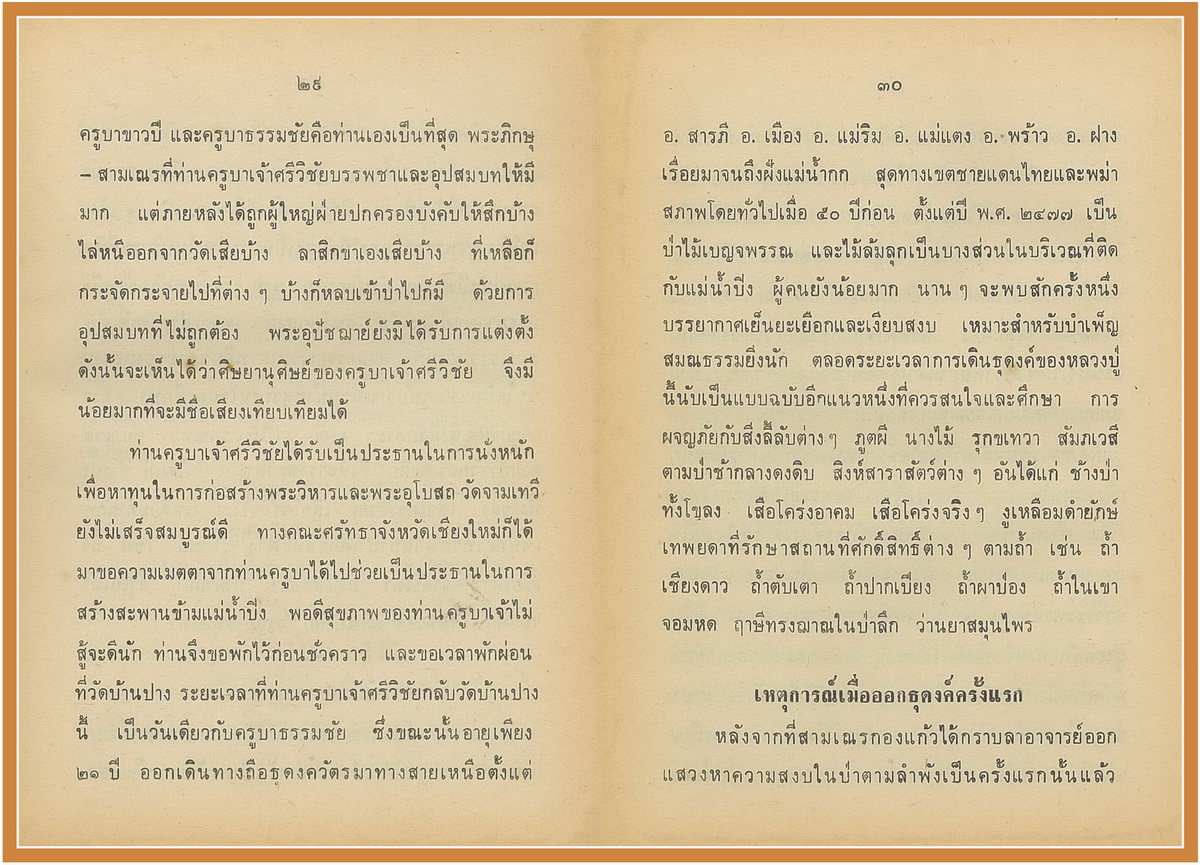 ๒๙
ครูบาขาวปี และครูบาธรรมชัยคือท่านเองเป็นที่สุด พระภิกษุ
– สามเณรที่ท่านครูบาเจ้าศรีวิชัยบรรพชาและอุปสมบทให้มี
มาก แต่ภายหลังได้ถูกผู้ใหญ่ฝ่ายปกครองบังคับให้สึกบ้าง
ไล่หนีออกจากวัดเสียบ้าง ลาสิกขาเองเสียบ้าง ที่เหลือก็
กระจัดกระจายไปที่ต่าง ๆ บ้างก็หลบเข้าป่าไปก็มี ด้วยการ
อุปสมบทที่ไม่ถูกต้อง พระอุปัชฌาย์ยังมิได้รับการแต่งตั้ง
ดังนั้นจะเห็นได้ว่าศิษยานุศิษย์ของครูบาเจ้าศรีวิชัย จึงมี
น้อยมากที่จะมีชื่อเสียงเทียบเทียมได้
ท่านครูบาเจ้าศรีวิชัยได้รับเป็นประธานในการนั่งหนัก
เพื่อหาทุนในการก่อสร้างพระวิหารและพระอุโบสถ วัดจามเทวี
ยังไม่เสร็จสมบูรณ์ดี ทางคณะศรัทธาจังหวัดเชียงใหม่ก็ได้
มาขอความเมตตาจากท่านครูบาได้ไปช่วยเป็นประธานในการ
สร้างสะพานข้ามแม่น้ำปิง พอดีสุขภาพของท่านครูบาเจ้าไม่
สู้จะดีนัก ท่านจึงขอพักไว้ก่อนชั่วคราว และขอเวลาพักผ่อน
ที่วัดบ้านปาง ระยะเวลาที่ท่านครูบาเจ้าศรีวิชัยกลับวัดบ้านปาง
นี้ เป็นวันเดียวกับครูบาธรรมชัย ซึ่งขณะนั้นอายุเพียง
๒๑ ปี ออกเดินทางถือธุดงควัตรมาทางสายเหนือตั้งแต่
๓๐
อ. สารภี อ. เมือง อ. แม่ริม อ. แม่แตง อ. พร้าว อ. ฝาง
เรื่อยมาจนถึงฝั่งแม่น้ำกก สุดทางเขตชายแดนไทยและพม่า
สภาพโดยทั่วไปเมื่อ ๕๐ ปีก่อน ตั้งแต่ปี พ.ศ. ๒๔๗๗ เป็น
ป่าไม้เบญจพรรณ และไม้ล้มลุกเป็นบางส่วนในบริเวณที่ติด
กับแม่น้ำปิง ผู้คนยังน้อยมาก นาน ๆ จะพบสักครั้งหนึ่ง
บรรยากาศเย็นยะเยือกและเงียบสงบ เหมาะสำหรับบำเพ็ญ
สมณธรรมยิ่งนัก ตลอดระยะเวลาการเดินธุดงค์ของหลวงปู่
นี้นับเป็นแบบฉบับอีกแนวหนึ่งที่ควรสนใจและศึกษา การ
ผจญภัยกับสิ่งลี้ลับต่างๆ ภูตผี นางไม้ รุกขเทวา สัมภเวสี
ตามป่าช้ากลางดงดิบ สิงห์สาราสัตว์ต่าง ๆ อันได้แก่ ช้างป่า
ทั้งโขลง เสือโคร่งอาคม เสือโคร่งจริง ๆ งูเหลือมดำยักษ์
เทพยดาที่รักษาสถานที่ศักดิ์สิทธิ์ต่าง ๆ ตามถ้ำ เช่น ถ้ำ
เชียงดาว ถ้ำตับเตา ถ้ำปากเปียง ถ้ำผาปอง ถ้ำในเขา
จอมหด ฤาษีทรงฌาณในป่าลึก ว่านยาสมุนไพร
เหตุการณ์เมื่อออกธุดงค์ครั้งแรก
หลังจากที่สามเณรกองแก้วได้กราบลาอาจารย์ออก
แสวงหาความสงบในป่าตามลำพังเป็นครั้งแรกนั้นแล้ว